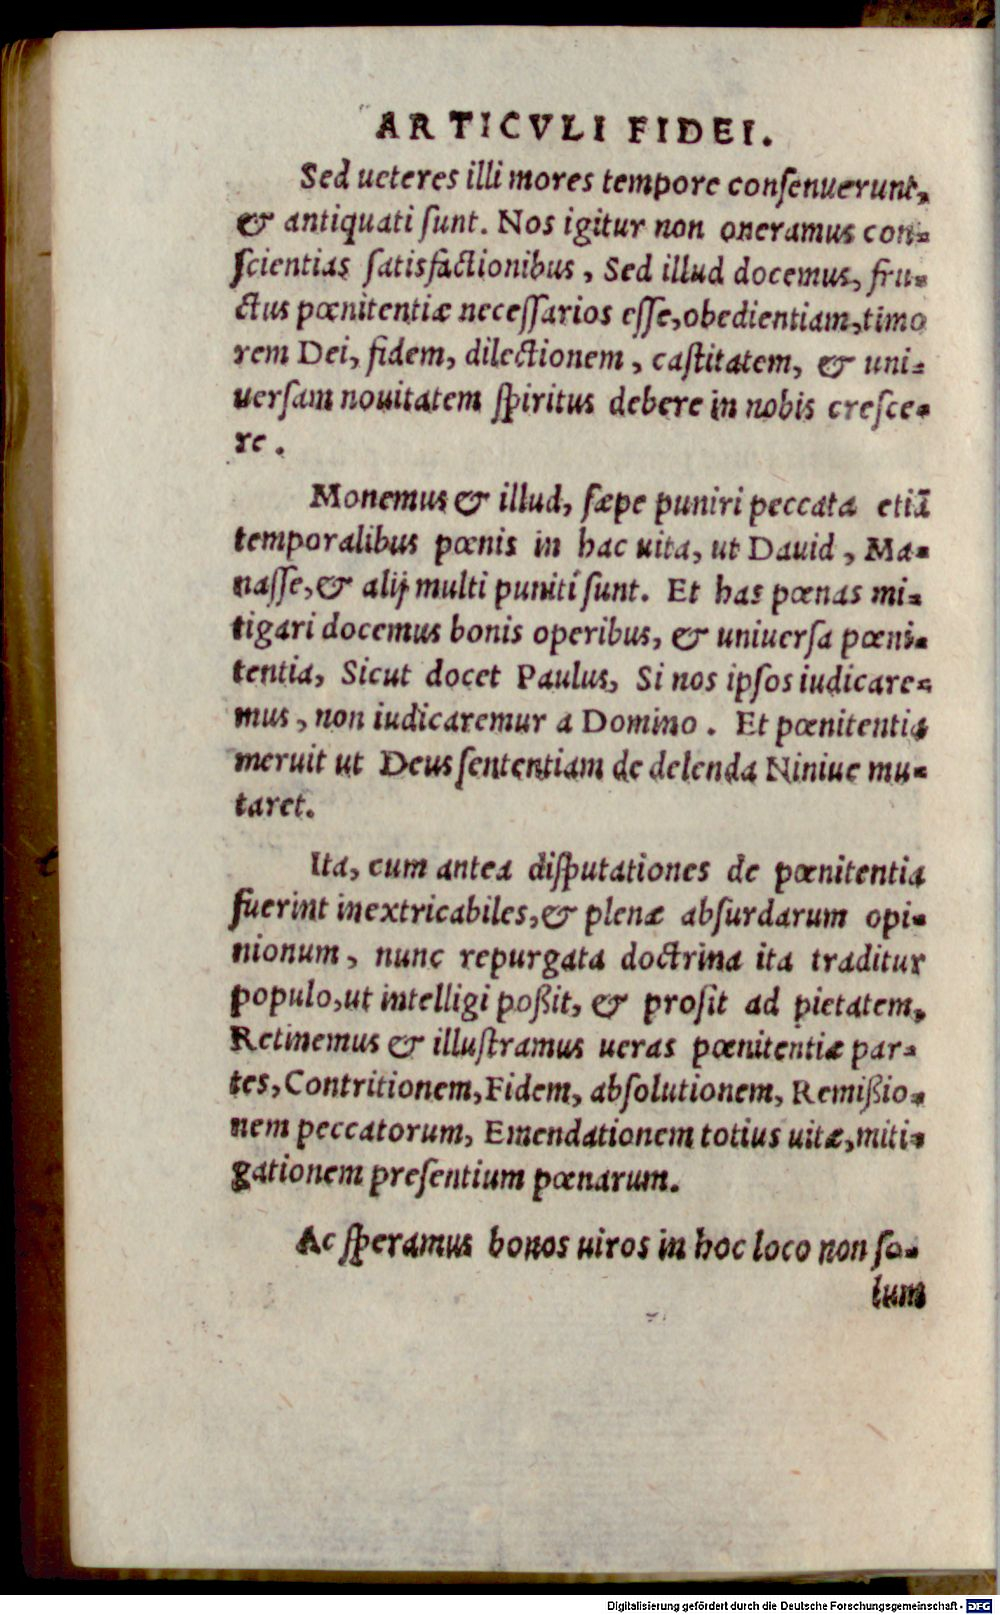 ARTICVLI FIDEI.
Sed ueteres illi mores tempore conſenuerunt,
& antiquati ſunt. Nos igitur non oneramus con-
ſcientias ſatisfactionibus, Sed illud docemus, fru-
ctus pœnitentiæ neceſſarios eſſe, obedientiam, timo
rem Dei, fidem, dilectionem, caſtitatem, & uni-
uerſam nouitatem ſpiritus debere in nobis creſce-
re.
Monemus & illud, ſæpe puniri peccata etiā
temporalibus pœnis in hac uita, ut Dauid, Ma-
naſſe, & alij multi puniti ſunt. Et has pœnas mi-
tigari docemus bonis operibus, & uniuerſa pœni-
tentia, Sicut docet Paulus, Si nos ipſos iudicare-
mus, non iudicaremur a Domino. Et pœnitentia
meruit ut Deus ſententiam de delenda Niniue mu-
taret.
Ita, cum antea diſputationes de pœnitentia
fuerint inextricabiles, & plenæ abſurdarum opi-
nionum, nunc repurgata doctrina ita traditur
populo, ut intelligi poßit, & proſit ad pietatem,
Retinemus & illuſtramus ueras pœnitentiæ par-
tes, Contritionem, Fidem, abſolutionem, Remißio-
nem peccatorum, Emendationem totius uitæ, miti-
gationem preſentium pœnarum.
Ac ſperamus bonos uiros in hoc loco non ſo-
lum
Digitalisierung gefördert durch die Deutsche Forschungsgemeinschaft - DFG